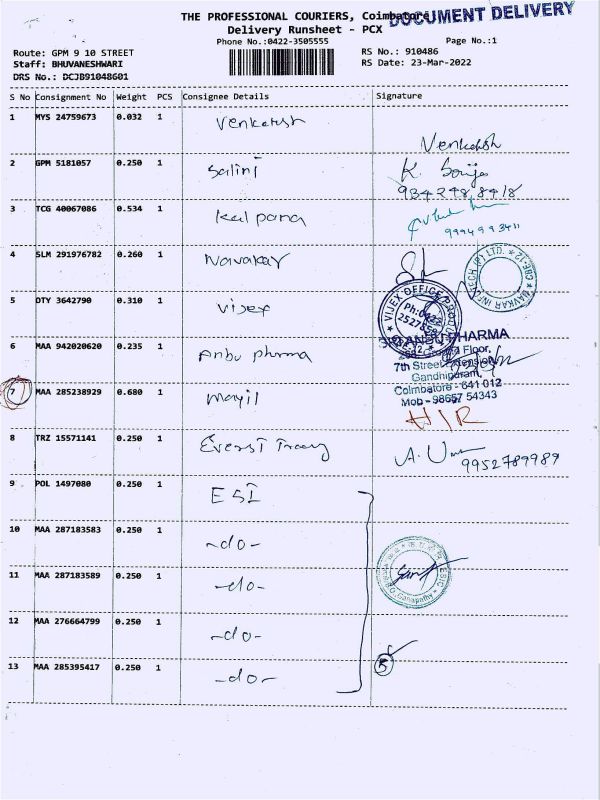 THE PROFESSIONAL COURIERS, Coimbatore
DOCUMENT DELIVERY
Delivery Runsheet - PCX
Phone No.:0422-3505555
Page No.:1
Route: GPM 9 10 STREET
RS No.: 910486
Staff: BHUVANESHWARI
RS Date: 23-Mar-2022
DRS No.: DCJB91048601
S No Consignment No Weight PCS Consignee Details Signature
1 MYS 24759673 0.032 1 Venkatesh
Venkatesh
2 GPM 5181057 0.250 1 Salini K.
9342488418
3 TCG 40067086 0.534 1 Kalpana
9994993411
4 SLM 291976782 0.260 1 Navakar
NAVKAR INFOTECH (P) LTD. CBE-12
5 DTY 3642790 0.310 1 Vijex
VIJEX OFFICE
Ph:0422
6 MAA 942020620 0.235 1 Anbu pharma
SRI ANBU PHARMA
Ground Floor,
7th Street Extension,
Gandhipuram,
Coimbatore - 641 012
Mob - 98657 54343
7 MAA 285238929 0.680 1 mayil H/R
8 TRZ 15571141 0.250 1 Everst Tracy A.
9952789989
9 POL 1497080 0.250 1 ESI
10 MAA 287183583 0.250 1 -do-
11 MAA 287183589 0.250 1 -do-
ESIC
Ganapathy
12 MAA 276664799 0.250 1 -do-
13 MAA 285395417 0.250 1 -do-
5